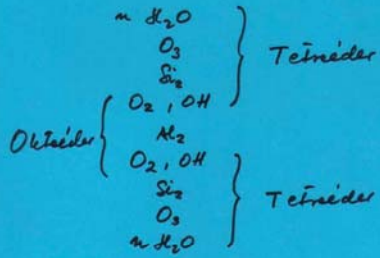 n H₂O
O₃
Si₂
O₂, OH
Al₂
O₂, OH
Si₂
O₃
n H₂O
Tetraeder
Oktaeder
Tetraeder